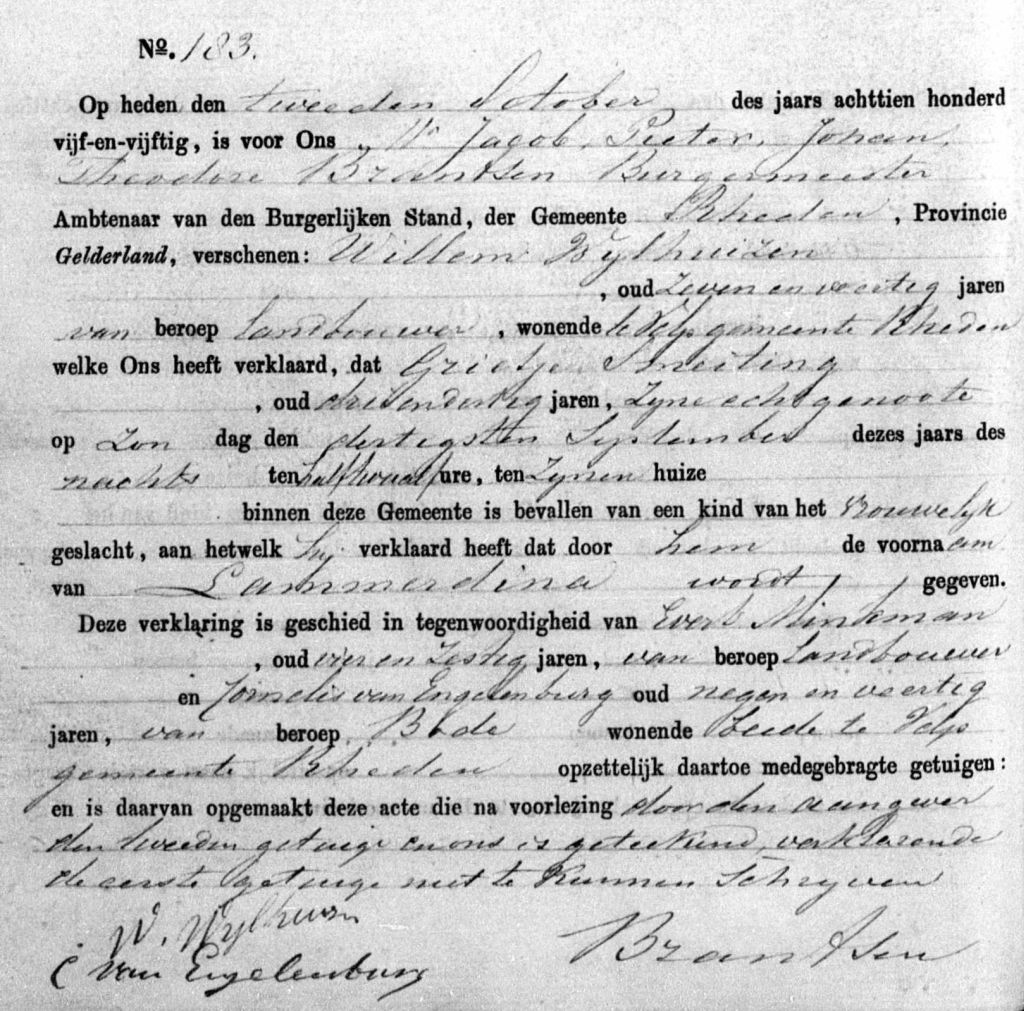 Nº. 183.
Op heden den tweeden October des jaars achttien honderd
vijf-en-vijftig, is voor Ons, Mr Jacob, Pieter, Johan,
Theodore Brantsen Burgemeester
Ambtenaar van den Burgerlijken Stand, der Gemeente Rheden, Provincie
Gelderland, verschenen: Willem Wylhuizen
, oud zeven en veertig jaren
van beroep landbouwer, wonende te Velp gemeente Rheden
welke Ons heeft verklaard, dat Grietje Smeiting
, oud drie en dertig jaren, zyne echtgenoote
op Zon dag den dertigsten September dezes jaars des
nachts ten half twaalf ure, ten zynen huize
binnen deze Gemeente is bevallen van een kind van het vrouwelyk
geslacht, aan hetwelk hy verklaard heeft dat door hem de voornaam
van Lammerdina wordt gegeven.
Deze verklaring is geschied in tegenwoordigheid van Evert Minkman
, oud vier en zestig jaren, van beroep landbouwer
en Cornelis van Engelenburg oud negen en veertig
jaren, van beroep Bode wonende beide te Velp
gemeente Rheden opzettelijk daartoe medegebragte getuigen:
en is daarvan opgemaakt deze acte die na voorlezing door den aangever
den tweeden getuige en ons is geteekend, verklarende
de eerste getuige niet te kunnen schryven
W. Wylhuizen
C van Engelenburg Brantsen